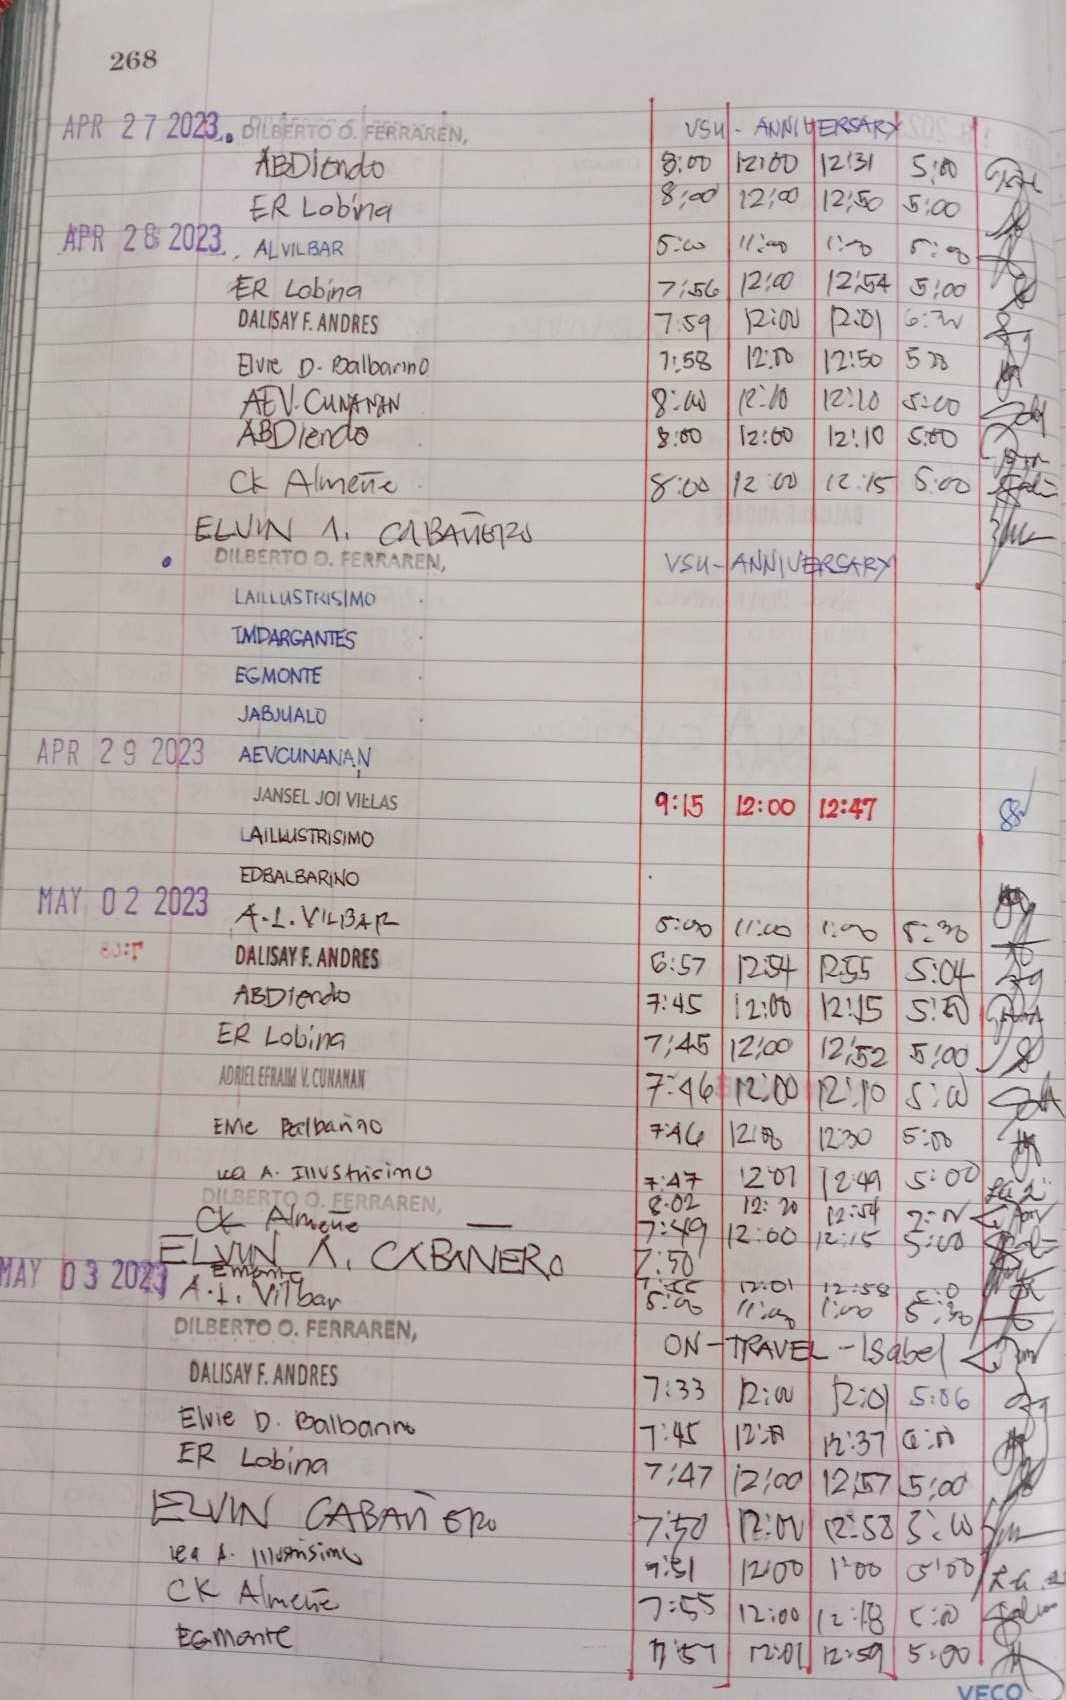 268
APR 27 2023. DILBERTO O. FERRAREN, VSU - ANNIVERSARY
ABDiendo 8:00 12:00 12:31 5:00
ER Lobina 8:00 12:00 12:50 5:00
APR 28 2023 ALVILBAR 5:00 11:00 1:00 5:00
ER Lobina 7:56 12:00 12:54 5:00
DALISAY F. ANDRES 7:59 12:00 12:01
Elvie D. Balbarino 7:58 12:00 12:50 5:00
AEV.CUNANAN 8:00 12:10 12:10 5:00
ABDiendo 8:00 12:00 12:10 5:00
CK Almeñe 8:00 12:00 12:15 5:00
ELVIN A. CABAÑERO
DILBERTO O. FERRAREN, VSU - ANNIVERSARY
LAILLUSTRISIMO
IMDARGANTES
EGMONTE
JABJUALO
APR 29 2023 AEVCUNANAN
JANSEL JOI VILLAS 9:15 12:00 12:47
LAILLUSTRISIMO
EDBALBARINO
MAY 02 2023 A.L. VILBAR 5:00 11:00 1:00 5:30
DALISAY F. ANDRES 6:57 12:54 12:55 5:04
ABDiendo 7:45 12:00 12:15
ER Lobina 7:45 12:00 12:52 5:00
ADRIEL EFRAIM V. CUNANAN 7:46 12:00 12:10 5:00
Balbarino 7:46 12:00 12:30 5:00
Lea A. Illustrisimo 7:47 12:01 12:49 5:00
DILBERTO O. FERRAREN, 8:02 12:20 12:54
CK Almeñe 7:49 12:00 12:15 5:00
ELVIN A. CABAÑERO 7:50
Emonte 12:01 12:58
MAY 03 2023 A.L. Vilbar 5:00 11:00 1:00 5:30
DILBERTO O. FERRAREN, ON-TRAVEL - Isabel
DALISAY F. ANDRES 7:33 12:00 12:01 5:06
Elvie D. Balbarino 7:45 12:37
ER Lobina 7:47 12:00 12:57 5:00
ELVIN CABAÑERO 7:50 12:00 12:58 5:00
Lea A. Illustrisimo 12:00 1:00 5:00
CK Almeñe 7:55 12:00 12:18 5:00
EGMonte 7:57 12:01 12:59 5:00
VECO